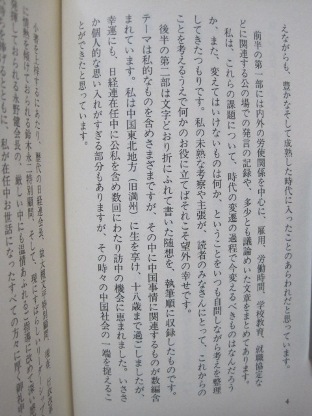 えながらも、豊かなそして成熟した時代に入ったことのあらわれだと思っています。
前半の第一部には内外の労使関係を中心に、雇用、労働時間、学校教育、就職協定な
どに関連する公の場での発言の記録や、多少とも議論めいた文章をまとめてあります。
私は、これらの課題について、時代の変遷の過程で今変えるべきものはなんだろう
か、また、変えてはいけないものは何か、ということをいつも自問しながら考えを整理
してきたつもりです。私の未熟な考察や主張が、読者のみなさんにとって、これからの
ことを考えるうえで何かのお役に立てばそれこそ望外の幸せです。
後半の第二部は文字どおり折にふれて書いた随想を、執筆順に収録したものです。
テーマは私的なものを含めさまざまですが、その中に中国事情に関連するものが数編含
まれています。私は中国東北地方（旧満州）に生を享け、十八歳まで過ごしましたが、
幸運にも、日経連在任中に公私を含め数回にわたり訪中の機会に恵まれました。いささ
か個人的な思い入れがすぎる部分もありますが、その時々の中国社会の一端を捉えるこ
とができたと思っています。
小著を上梓するにあたり、歴代の日経連会長、
永野健会長の、厳しい中にも温情あふれるご指導に改めて感
私が在任中お世話になったすべての方々に厚く御礼申
4